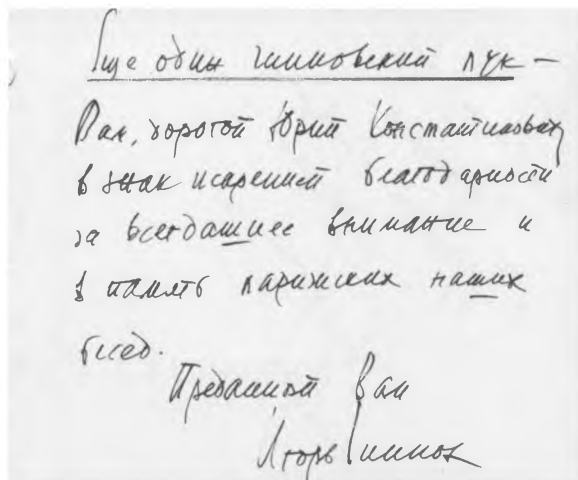 Еще один чинновский лук –
Вам, дорогой Юрий Константинович,
в знак искренней благодарности
за всегдашнее внимание и
в память парижских наших
бесед.
Преданный Вам
Игорь Чиннов